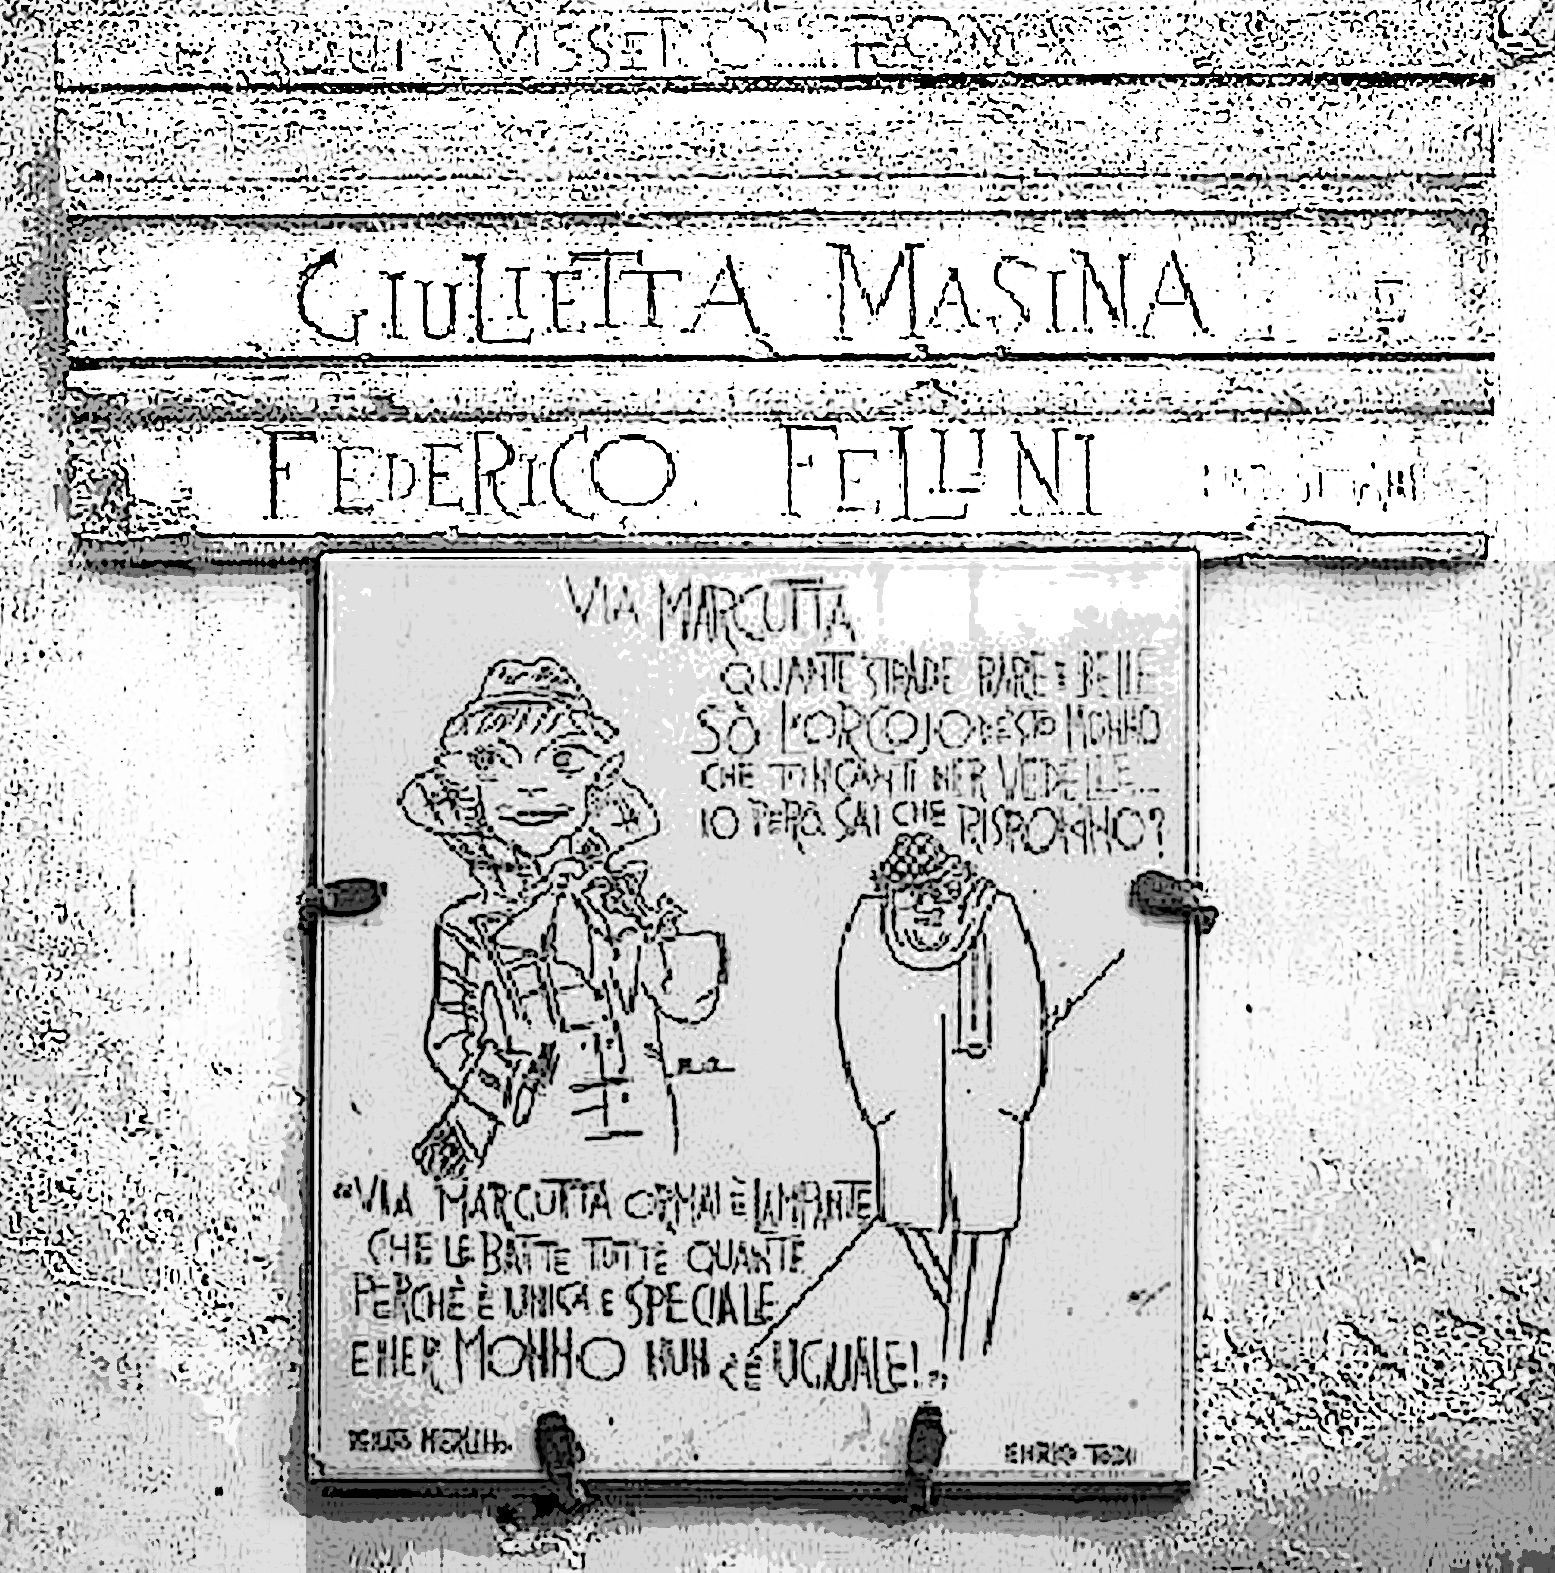 QUI VISSERO
GIULIETTA MASINA E
FEDERICO FELLINI
VIA MARGUTTA
QUANTE STRADE RARE E BELLE
SÒ L'ORGOJO DE STO MONNO
CHE T'INCANTI NER VEDELLE...
IO PERÒ SAI CHE RISPONNO?
"VIA MARGUTTA ORMAI È LAMPANTE
CHE LE BATTE TUTTE QUANTE
PERCHÈ È UNICA E SPECIALE
E NER MONNO NUN C'È UGUALE!"
ENRIO TODI